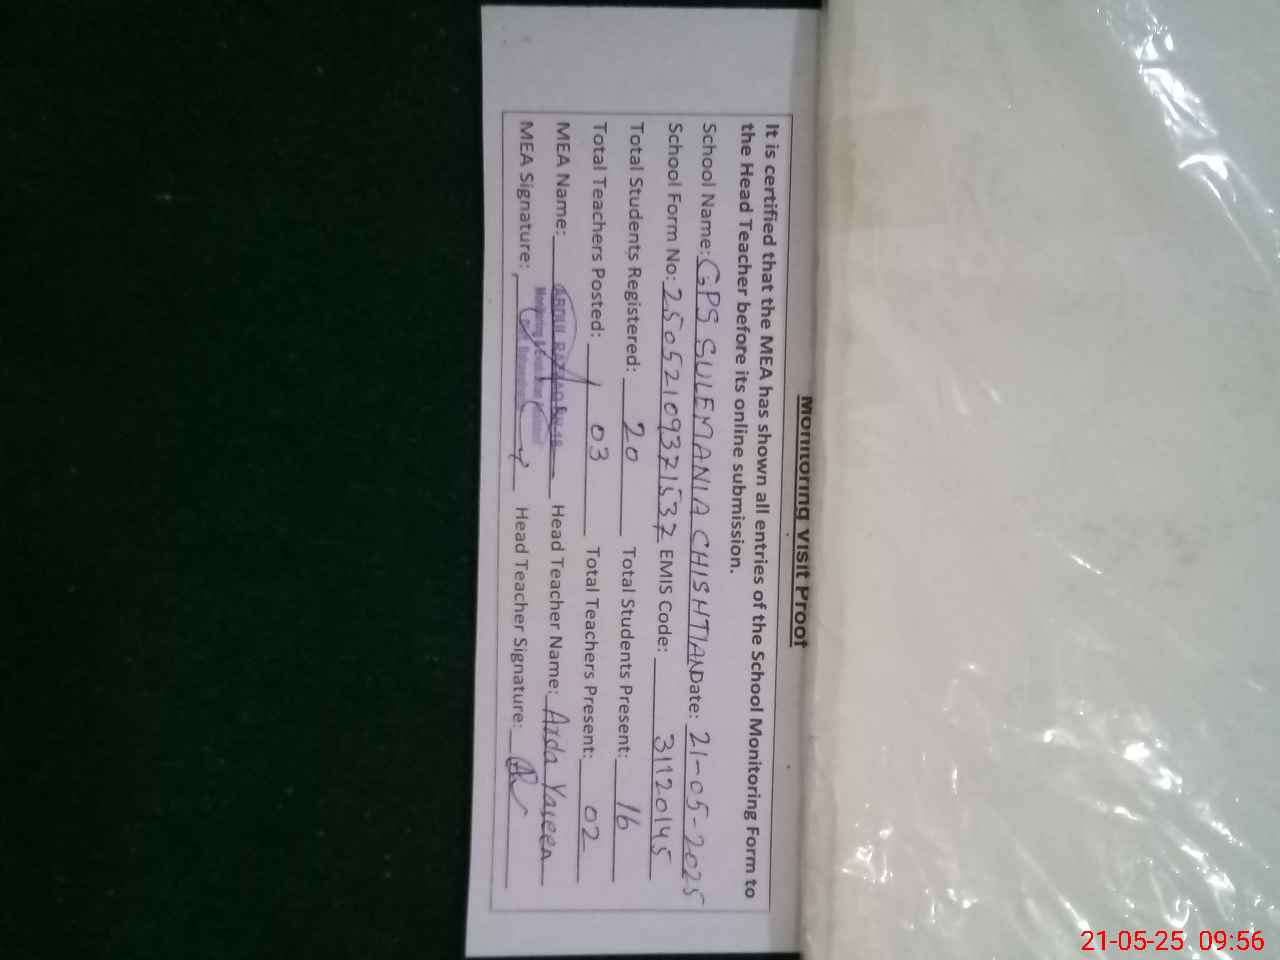 Monitoring Visit Proof
It is certified that the MEA has shown all entries of the School Monitoring Form to
the Head Teacher before its online submission.
School Name: GPS SULEMANIA CHISHTIAN Date: 21-05-2025
School Form No: 25052109371537 EMIS Code: 31120145
Total Students Registered: 20 Total Students Present: 16
Total Teachers Posted: 03 Total Teachers Present: 02
MEA Name: ABDUL Head Teacher Name: Arda Yaseen
Monitoring &
MEA Signature: Head Teacher Signature:
21-05-25 09:56